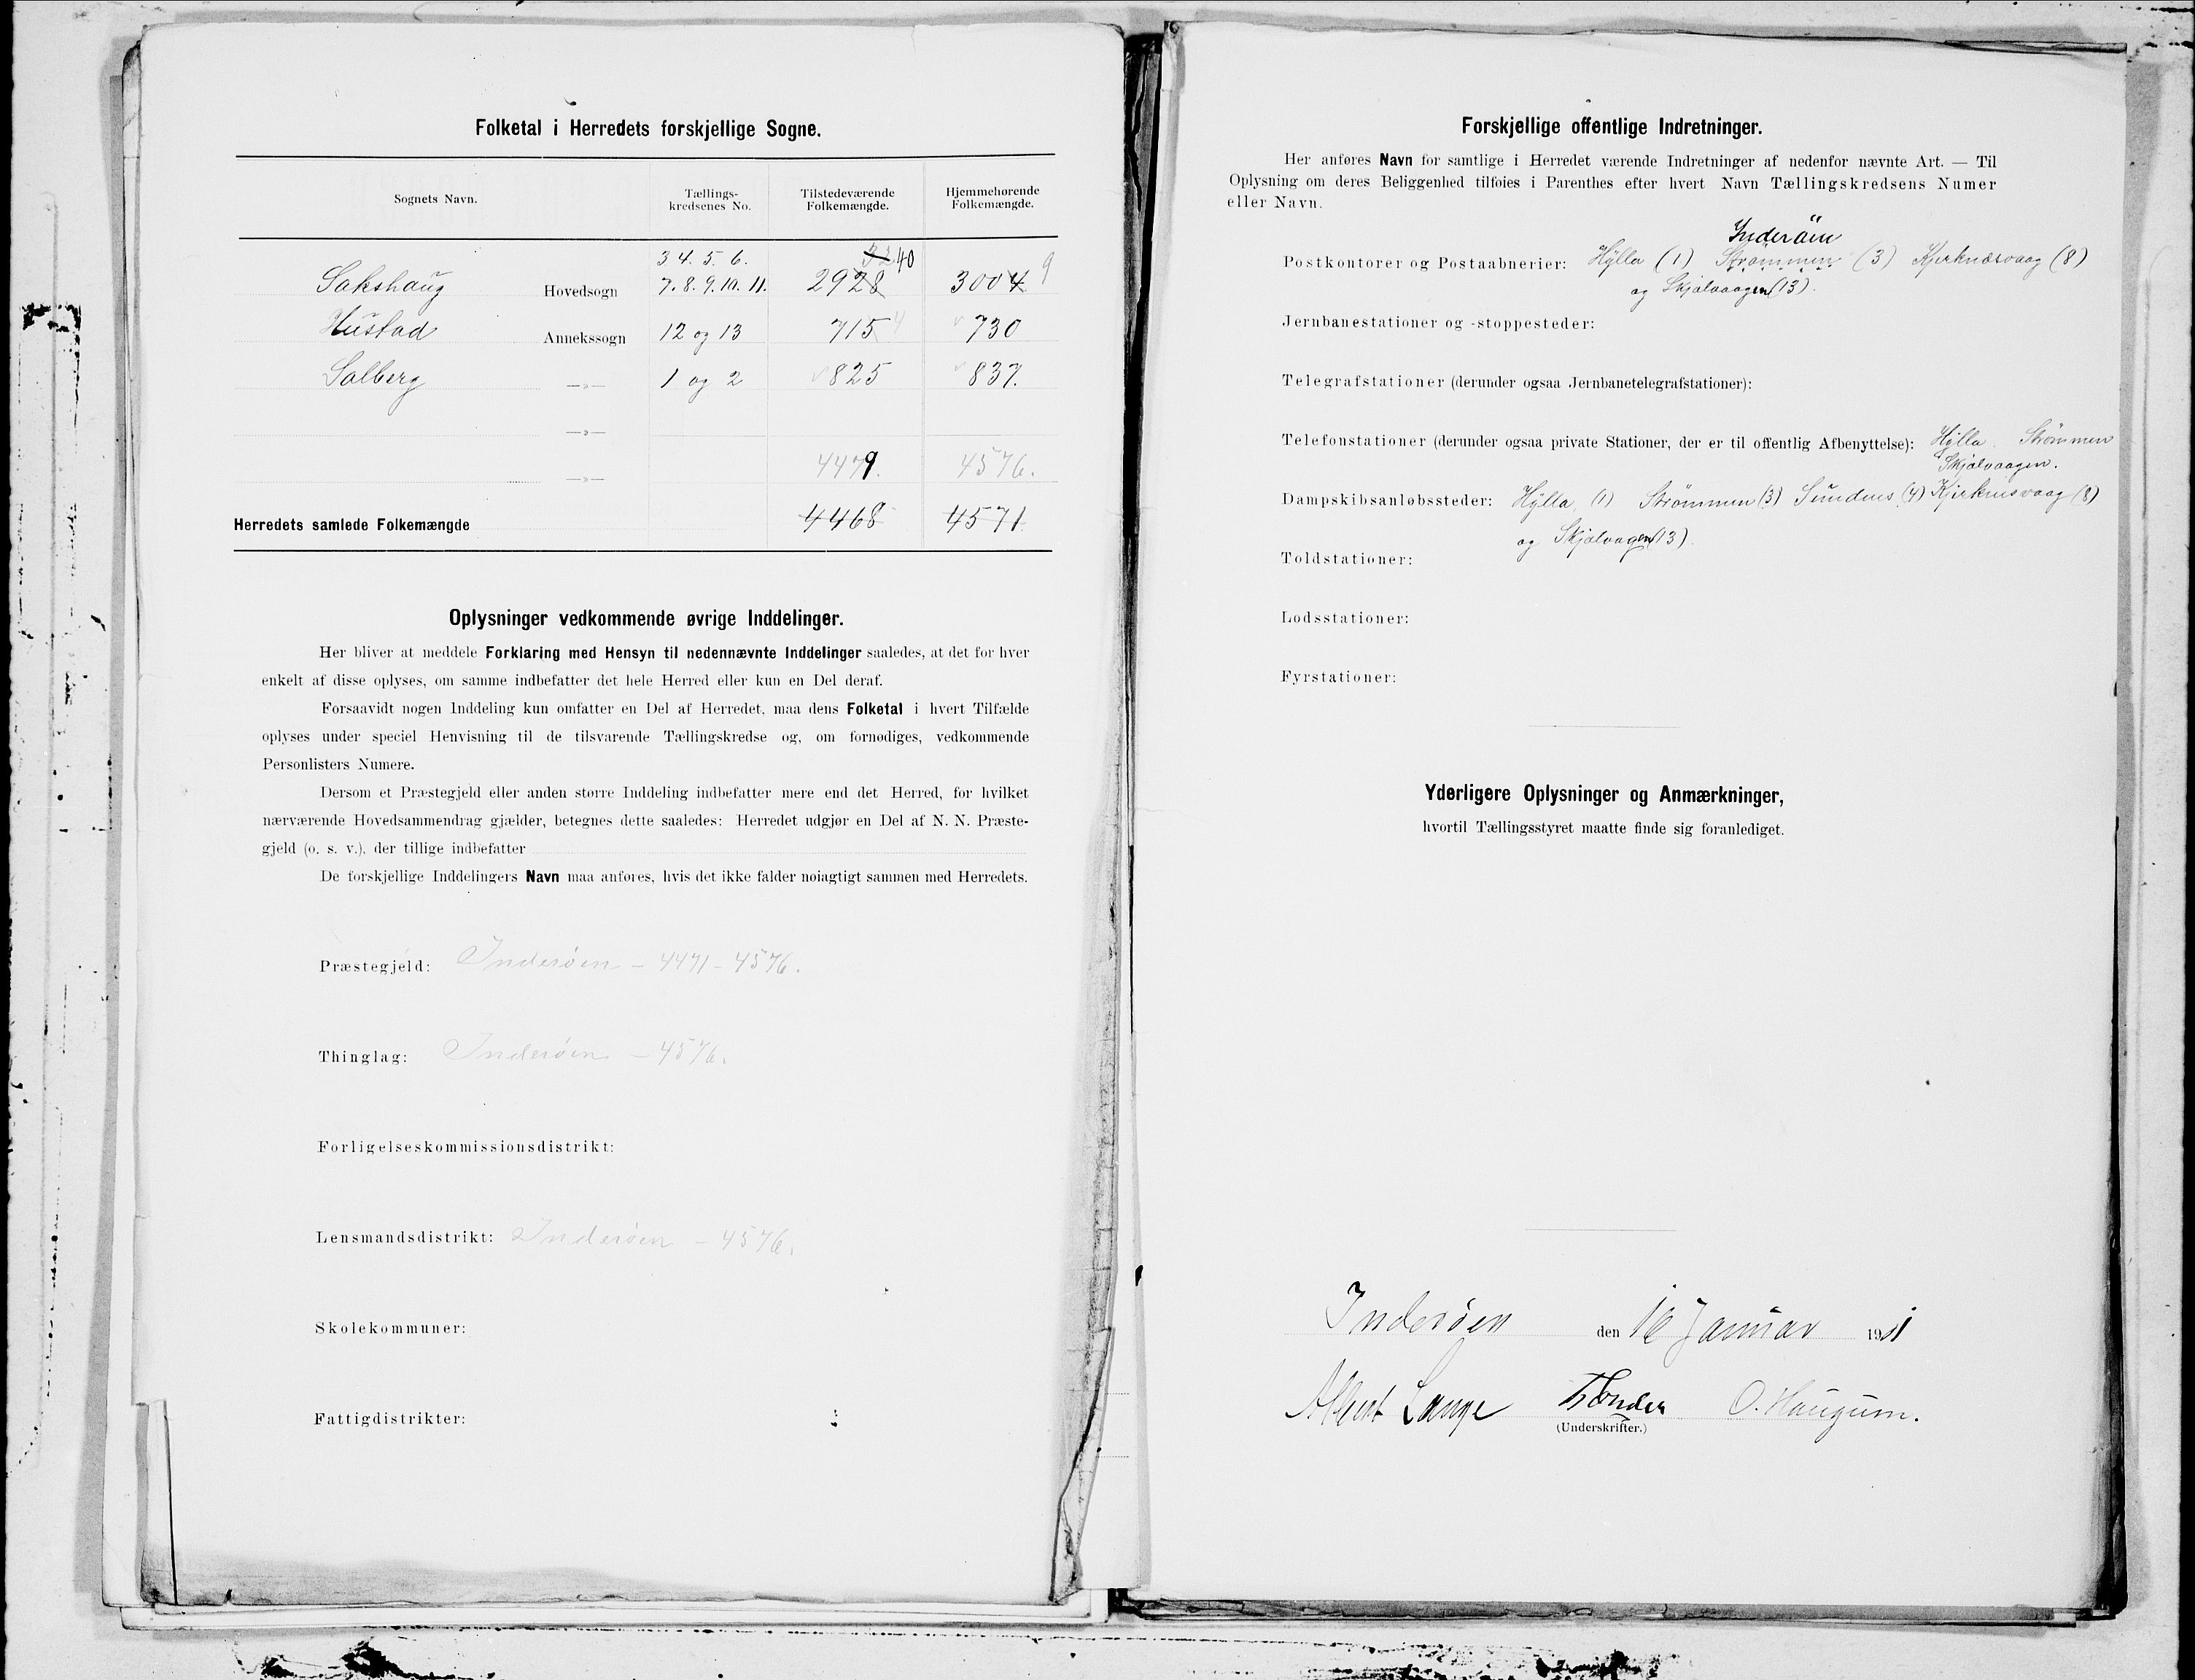 Folketal i Herredets forskjellige Sogne.
Sognets Navn. Tællings- Tilstedeværende Hjemmehørende
kredsenes No. Folkemængde. Folkemængde.
3 4. 5. 6. 40 9
Sakshaug Hovedsogn 7. 8. 9. 10. 11. 2928 3004
Hustad Annekssogn 12 og 13 715 4 730
Salberg —»— 1 og 2 825 837.
—»—
—»— 4479. 4576.
Herredets samlede Folkemængde 4468 4571
Oplysninger vedkommende øvrige Inddelinger.
Her bliver at meddele Forklaring med Hensyn til nedennævnte Inddelinger saaledes, at det for hver
enkelt af disse oplyses, om samme indbefatter det hele Herred eller kun en Del deraf.
Forsaavidt nogen Inddeling kun omfatter en Del af Herredet, maa dens Folketal i hvert Tilfælde
oplyses under speciel Henvisning til de tilsvarende Tællingskredse og, om fornødiges, vedkommende
Personlisters Numere.
Dersom et Præstegjeld eller anden større Inddeling indbefatter mere end det Herred, for hvilket
nærværende Hovedsammendrag gjælder, betegnes dette saaledes: Herredet udgjør en Del af N. N. Præste-
gjeld (o. s. v.), der tillige indbefatter
De forskjellige Inddelingers Navn maa anføres, hvis det ikke falder nøiagtigt sammen med Herredets.
Præstegjeld: Inderøen – 4471 – 4576.
Thinglag: Inderøen – 4576.
Forligelseskommissionsdistrikt:
Lensmandsdistrikt: Inderøen – 4576.
Skolekommuner:
Fattigdistrikter:
Forskjellige offentlige Indretninger.
Her anføres Navn for samtlige i Herredet værende Indretninger af nedenfor nævnte Art. — Til
Oplysning om deres Beliggenhed tilføies i Parenthes efter hvert Navn Tællingskredsens Numer
eller Navn.
Inderøen
Postkontorer og Postaabnerier: Hylla (1) Strømmen (3) Kjerknæsvaag (8)
og Skjelvaagen (13).
Jernbanestationer og -stoppesteder:
Telegrafstationer (derunder ogsaa Jernbanetelegrafstationer):
Telefonstationer (derunder ogsaa private Stationer, der er til offentlig Afbenyttelse): Hylla. Strømmen
Skjelvaagen.
Dampskibsanløbssteder: Hylla (1) Strømmen (3) Sundnes (4) Kjerknesvaag (8)
og Skjelvagen (13).
Toldstationer:
Lodsstationer:
Fyrstationer:
Yderligere Oplysninger og Anmærkninger,
hvortil Tællingsstyret maatte finde sig foranlediget.
Inderøen den 16 Januar 1901
Albert Lange Trønder O. Haugum.
(Underskrifter.)